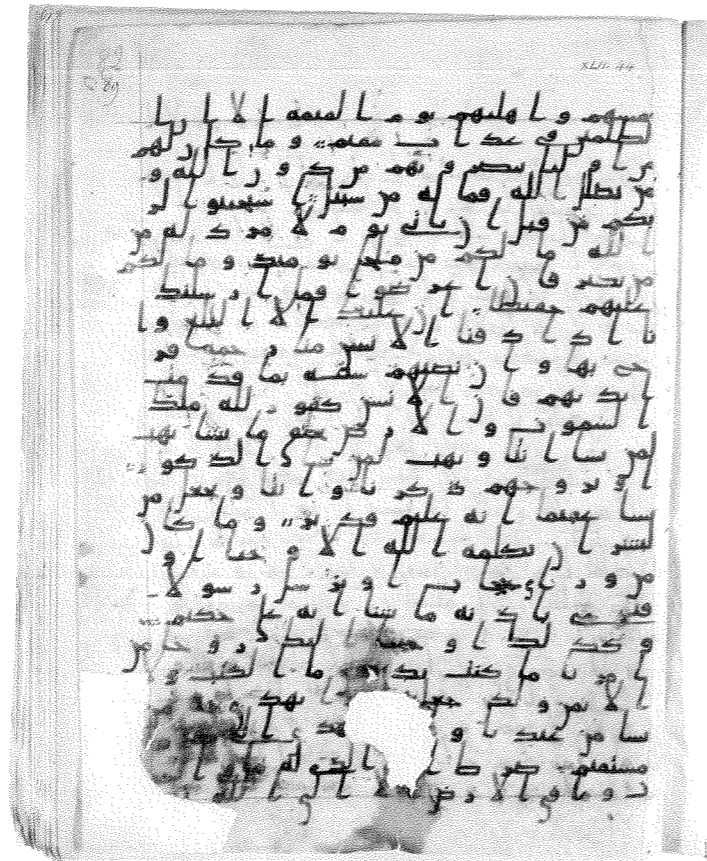 نفسهم و ا هليهم يو م ا لقيمه ا لا ا ن ا
لظلمين في عذ ا ب مقيم و ما كا ن لهم
من ا و ليا ينصر و نهم من د و ن ا لله و
من يضلل ا لله فما له من سبيل ا ستجيبو ا لر
بكم من قبل ا ن يا تي يو م لا مر د له من
ا لله ما لكم من ملجا يو مئذ و ما لكم
من نكير فا ن ا عر ضو ا فما ا ر سلنك
عليهم حفيظا ا ن عليك ا لا ا لبلغ و ا
نا ا ذ ا ا ذ قنا ا لا نسن منا ر حمه فر
ح بها و ا ن تصبهم سيئه بما قد مت
ا يد يهم فا ن ا لا نسن كفو ر لله ملك
ا لسمو ت و ا لا ر ض يخلق ما يشا يهب
لمن يشا ا نثا و يهب لمن يشا ا لذ كو ر
ا و يز و جهم ذ كر نا و ا نثا و يجعل من
يشا عقيما ا نه عليم قد ير و ما كا ن
لبشر ا ن يكلمه ا لله ا لا و حيا ا و
من و ر ا ي حجا ب ا و ير سل ر سو لا
فيو حي با ذ نه ما يشا ا نه علي حكيم
و كذ لك ا و حينا ا ليك ر و حا من
ا مر نا ما كنت تد ر ي ما ا لكتب و لا
ا لا يمن و لكن جعلنه نهد ي به من
نشا من عبد نا و لتهد ي ا لى
مستقيم صر ط ا لله ا لذ ي له ما في ا لسمو
ت و ما في ا لا ر ض ا لا ا لى ا لله